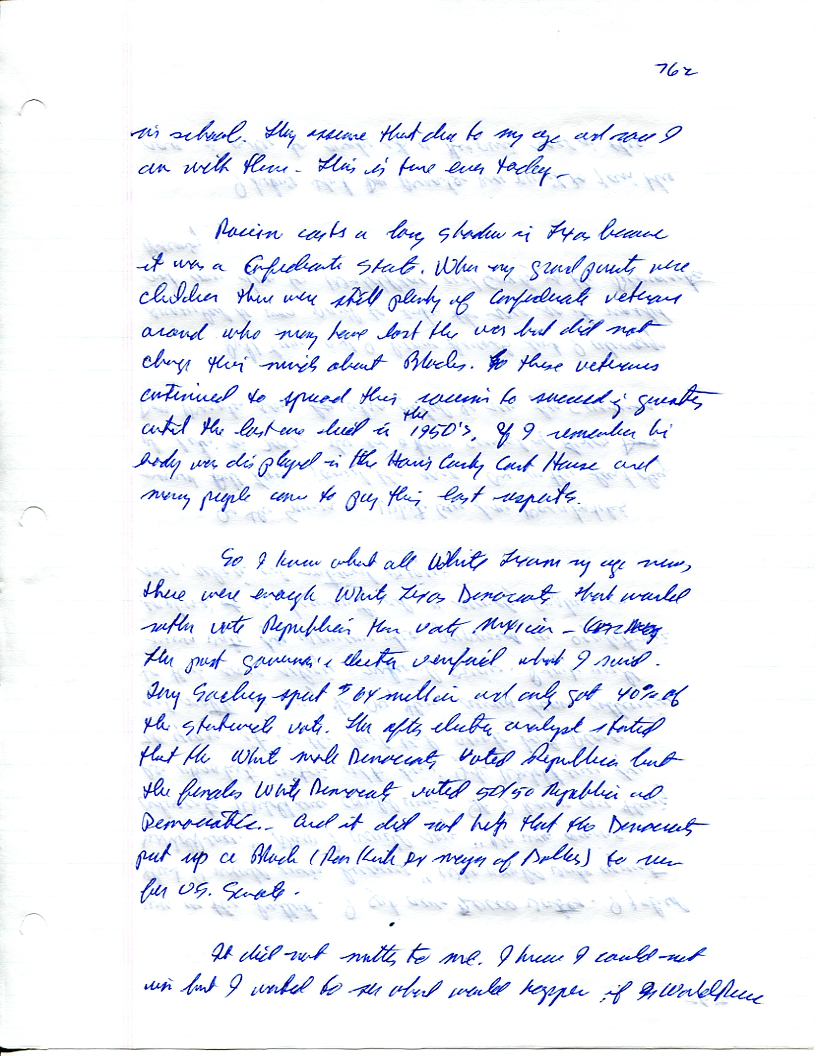 762
in school. They assume that due to my age and race I
am with them - This is true even today -
Racism casts a long shadow in Texas because
it was a Confederate State. When my grand parents were
children there were still plenty of Confederate veterans
around who may have lost the war but did not
change their minds about Blacks. So these veterans
continued to spread their racism to succeeding generations
until the last one died in the 1950's. If I remember his
body was displayed in the Harris County Court House and
many people came to pay their last respects.
So I knew what all White Texans my age knew,
there were enough White Texas Democrats that would
rather vote Republican than vote Mexican -
The past governor's election verified what I said.
Tony Sanchez spent $64 million and only got 40% of
the statewide vote. The after election analyst stated
that the White male Democrats voted Republican but
the females White Democrats voted 50/50 Republican and
Democratic. - And it did not help that the Democrats
put up a Black (Ron Kirk ex mayor of Dallas) to run
for U.S. Senate.
It did not matter to me. I knew I could not
win but I wanted to see what would happen if